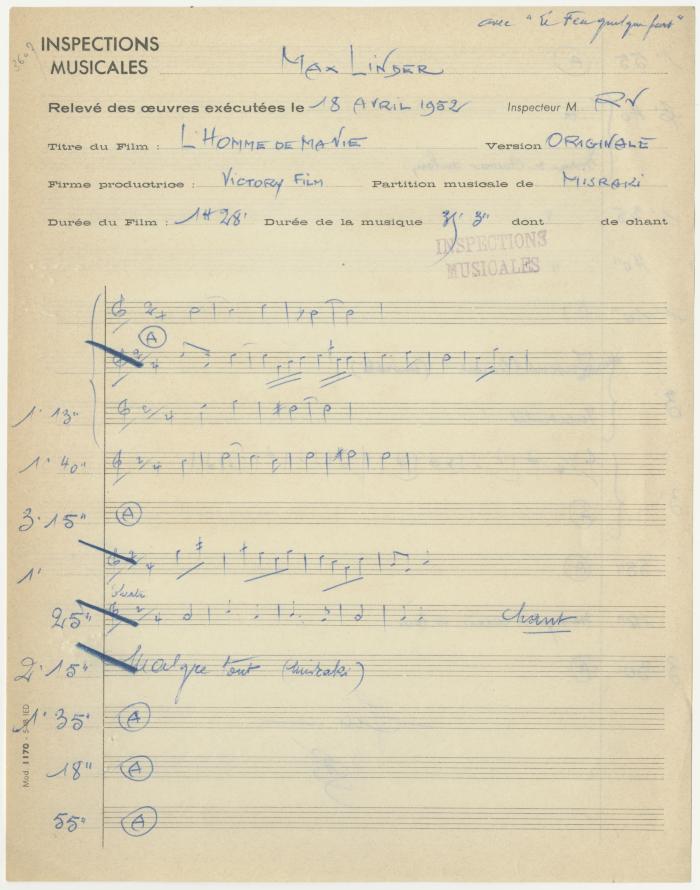 avec "Le Feu quelque part"
INSPECTIONS
MUSICALES
MAX LINDER
Relevé des œuvres exécutées le 18 AVRIL 1952 Inspecteur M. RV
Titre du Film : L'HOMME DE MA VIE Version ORIGINALE
Firme productrice : VICTORY FILM Partition musicale de MISRAKI
Durée du Film : 1H 28' Durée de la musique 3" dont de chant
INSPECTIONS
MUSICALES
A
2/4
1' 13"
2/4
1' 40"
2/4
3' 15" A
1'
2/4
25"
2/4
chant
2' 15" Malgré tout (Misraki)
1' 35" A
18" A
55" A
Mod. 1170